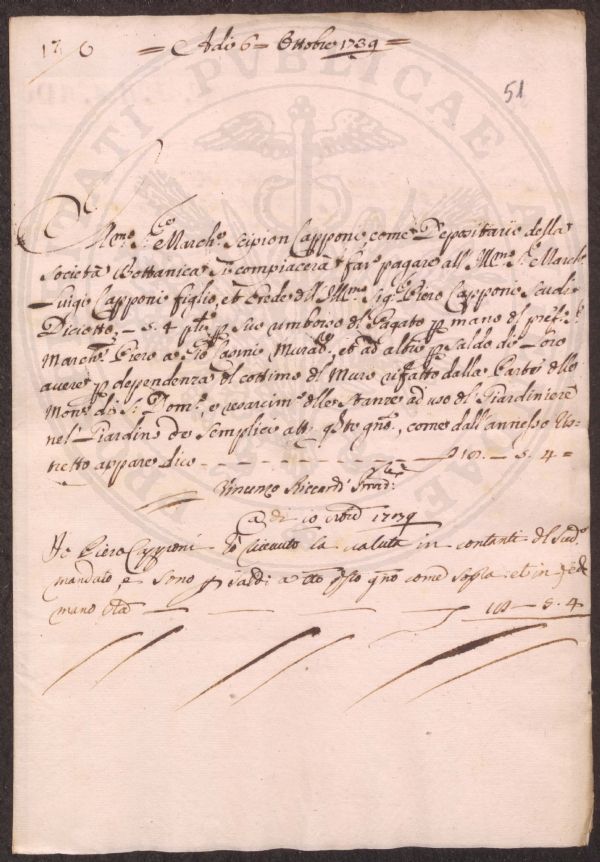 = Adì 6 Ottobre 1739 =
51
Ill.mo S.e March.e Scipion Capponi come Depositario della
Società Bottanica si compiacerà far pagare all' Ill.mo S.e March.e
Luigi Capponi figlio, et Erede dell' Ill.mo Sig.e Piero Capponi Scudi
Diciotto, - 5. 4 per suo rimborso del Pagato per mano del pref.o S.e
March.e Piero a Gio. Casini Murad.e, et ad altri per saldo di loro
avere per dependenza del cottimo del Muro rifatto dalla Parte delle
Mon.e di S. Dom.o, e resarcim.o delle Stanze ad uso del Giardiniere
nel Giardino de Semplici a tt.o q.sto g.no, come dall' annesso Ri-
stretto appare dico - - - 18. - 5. 4 =
Vincenzo Riccardi Prov.e
A dì 10 1739
Io Piero Capponi ho ricevuto la valuta in contanti del sud.o
mandato, e sono per saldi a tto q.sto g.no come sopra et in fede
mano - - - 18 - 5. 4